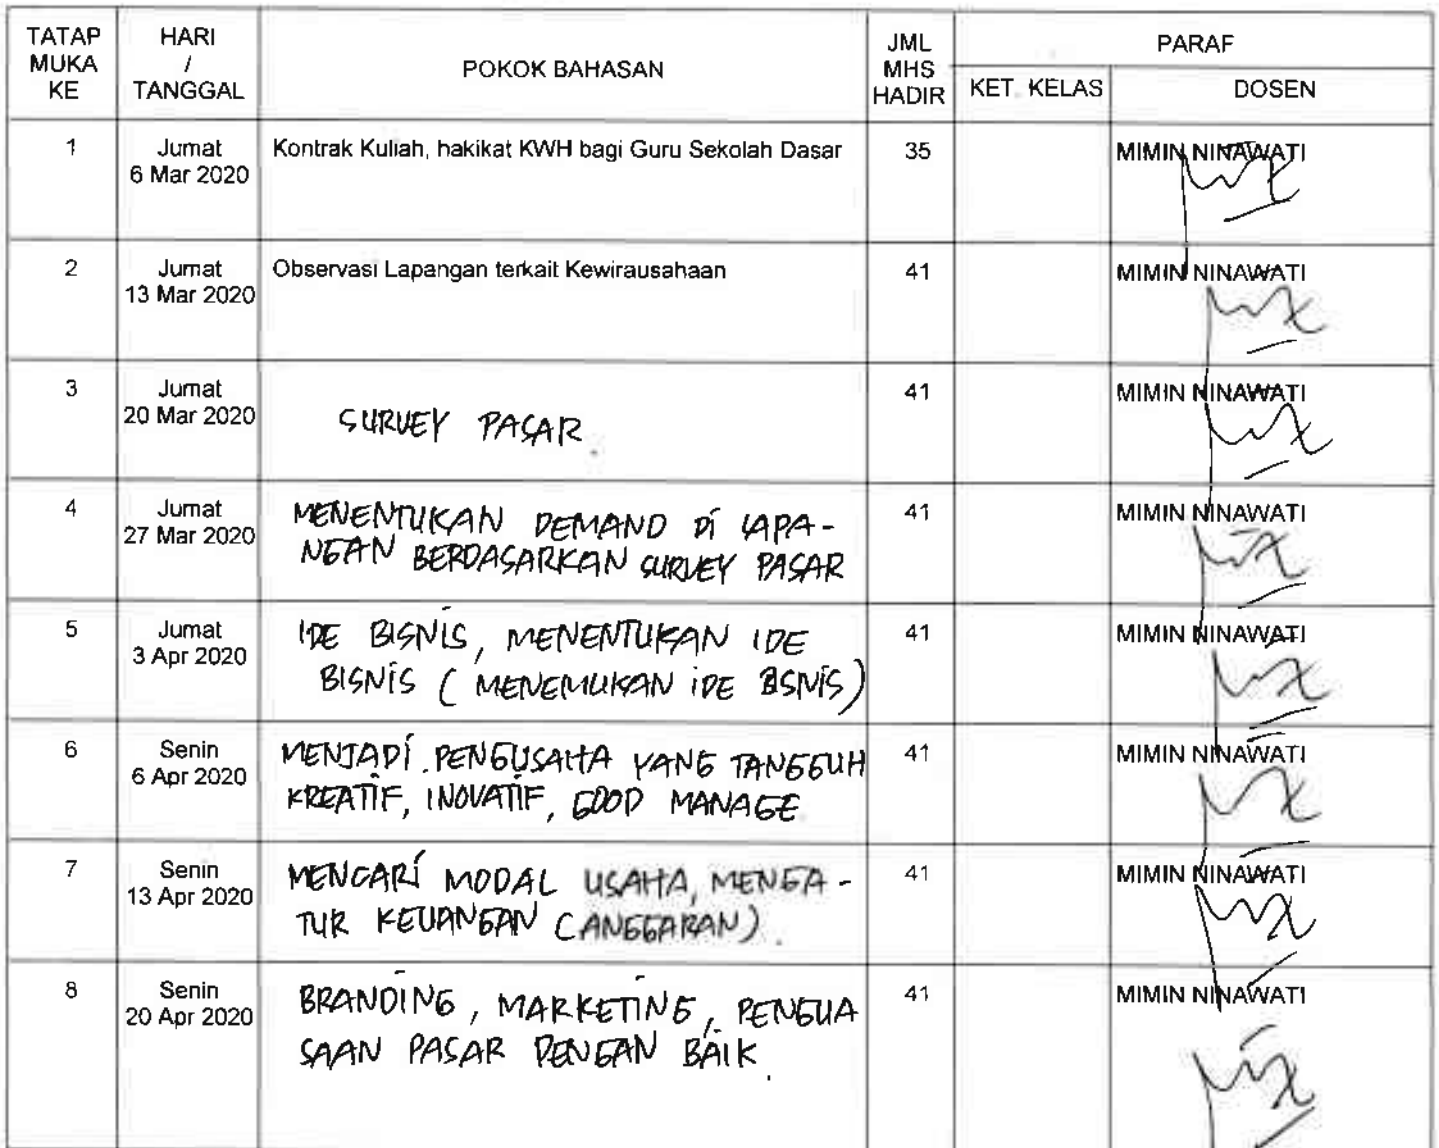 TATAP MUKA KE
HARI / TANGGAL
POKOK BAHASAN
JML MHS HADIR
PARAF
KET. KELAS
DOSEN
1
Jumat
6 Mar 2020
Kontrak Kuliah, hakikat KWH bagi Guru Sekolah Dasar
35
MIMIN NINAWATI
2
Jumat
13 Mar 2020
Observasi Lapangan terkait Kewirausahaan
41
MIMIN NINAWATI
3
Jumat
20 Mar 2020
SURVEY PASAR
41
MIMIN NINAWATI
4
Jumat
27 Mar 2020
MENENTUKAN DEMAND Di LAPA-
NGAN BERDASARKAN SURVEY PASAR
41
MIMIN NINAWATI
5
Jumat
3 Apr 2020
IDE BISNIS, MENENTUKAN IDE
BISNIS (MENEMUKAN iDE BSNiS)
41
MIMIN NINAWATI
6
Senin
6 Apr 2020
MENJADI PENGUSAHA YANG TANGGUH
KREATIF, INOVATIF, GOOD MANAGE
41
MIMIN NINAWATI
7
Senin
13 Apr 2020
MENCARI MODAL USAHA, MENGA-
TUR KEUANGAN (ANGGARAN).
41
MIMIN NINAWATI
8
Senin
20 Apr 2020
BRANDING, MARKETING, PENGUA
SAAN PASAR DENGAN BAIK.
41
MIMIN NINAWATI